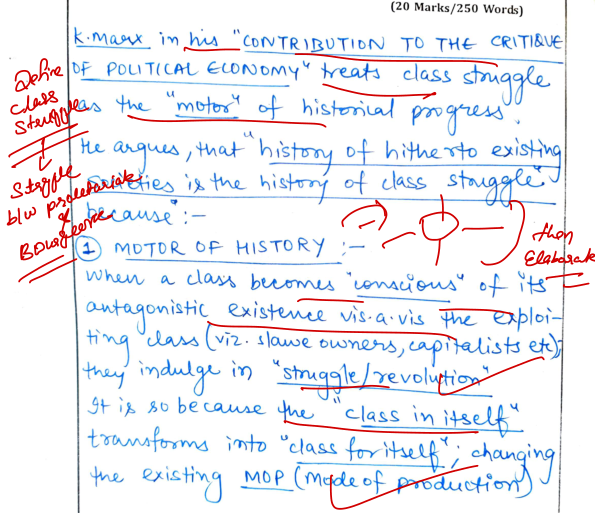 (20 Marks/250 Words)
K. Marx in his "CONTRIBUTION TO THE CRITIQUE
OF POLITICAL ECONOMY" treats class struggle
as the "motor" of historical progress.
He argues, that "history of hitherto existing
societies is the history of class struggle"
because :-
Define
class
Struggle
Struggle
b/w proletariate
&
Bourgeoisie
then
Elaborate
1 MOTOR OF HISTORY :-
When a class becomes "conscious" of its
antagonistic existence vis-a-vis the exploi-
ting class (viz. slave owners, capitalists etc);
they indulge in "struggle/revolution"
It is so because the "class in itself"
transforms into "class for itself"; changing
the existing MOP (Mode of production)